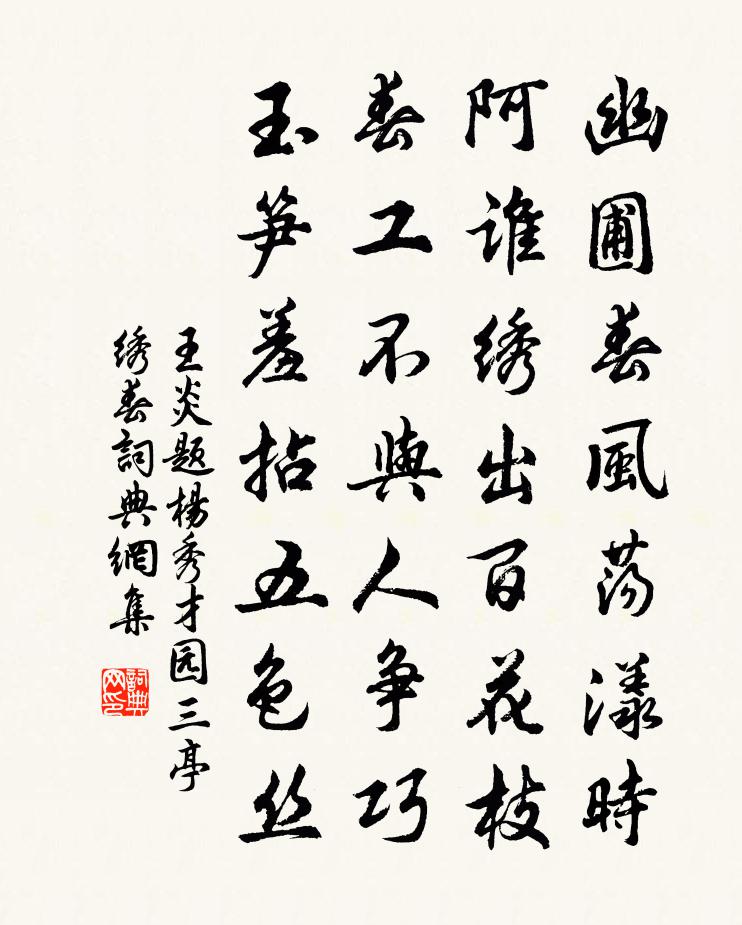 幽圃春風荡漾時
阿谁绣出百花枝
春工不與人争巧
玉笋羞拈五色丝
王炎题楊秀才园三亭
绣春詞典網集
詞典
网印